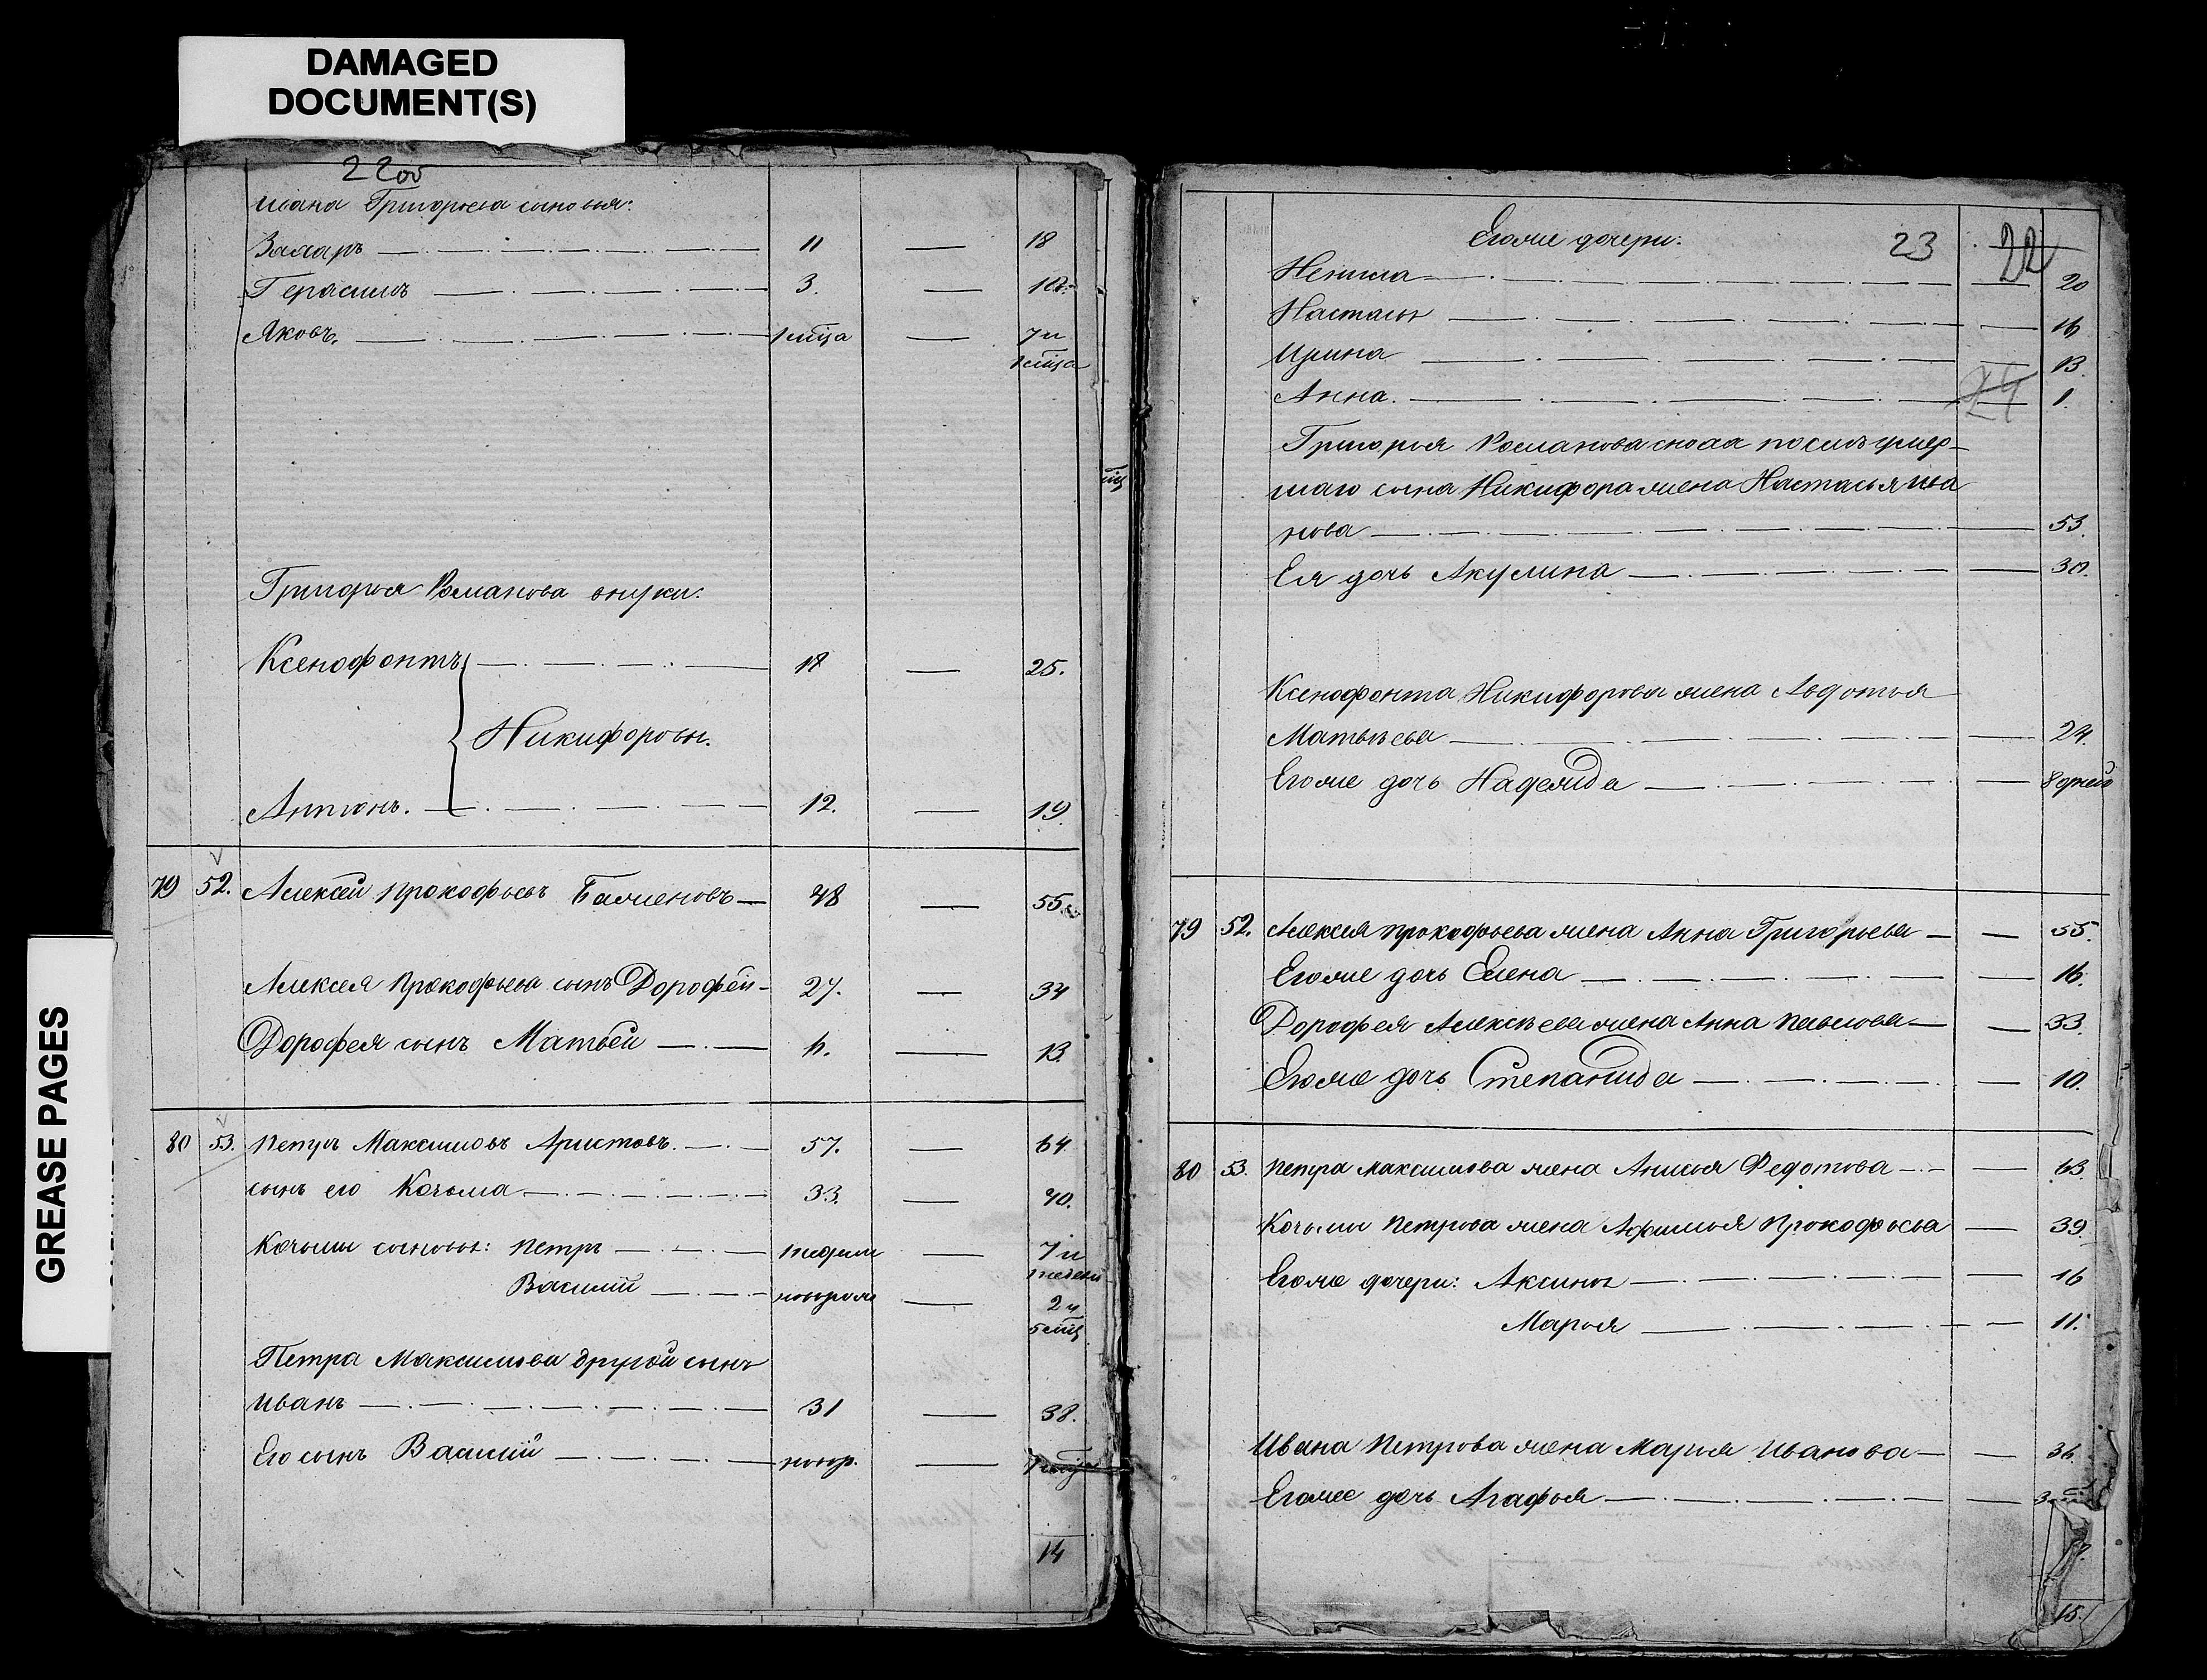 DAMAGED
DOCUMENT(S)
GREASE PAGES
22 об
Ивана Григорьева сыновья:
Захаръ 11 — 18
Герасимъ 3. — 10.
Яковъ. 1 мѣца — 7 и
1 мѣца
Григорья Романова внуки:
Ксенофонтъ 18 — 25.
Никифоровы.
Антонъ. 12. — 19.
79 52. Алексей Прокофьевъ Баженовъ — 48 — 55.
Алексея Прокофьева сынъ Дорофей — 27. — 34
Дорофея сынъ Матвей — 6. — 13.
80 53. Петръ Максимовъ Аристовъ. — 57. — 64.
сынъ его Козьма — 33. — 40.
Козьмы сыновья: Петръ — 1 недели — 7 и
1 недели
Василій — новорож — 2 и
5 мѣц
Петра Максимова другой сынъ
Иванъ — 31 — 38.
Его сынъ Василій — новор. —
14
Егоже дочери: 23 22
Ненила — 20
Настасья — 16
Ирина — 13.
Анна. — 1.
24
Григорья Романова сноха послѣ умер-
шаго сына Никифора жена Настасья Ива
нова — 53.
Ея дочь Акулина — 30.
Ксенофонта Никифорова жена Авдотья
Матвѣева — 24.
Егоже дочь Надежда — 8 дней
79 52. Алексея Прокофьева жена Анна Григорьева — 55.
Егоже дочь Елена — 16.
Дорофея Алексѣева жена Анна Павлова — 33.
Егоже дочь Степанида — 10.
80 53. Петра Максимова жена Анисья Федотова — 63.
Козьмы Петрова жена Афимья Прокофьева — 39.
Егоже дочери: Аксинья — 16
Марья — 11.
Ивана Петрова жена Марья Иванова — 36.
Егоже дочь Агафья —
15.